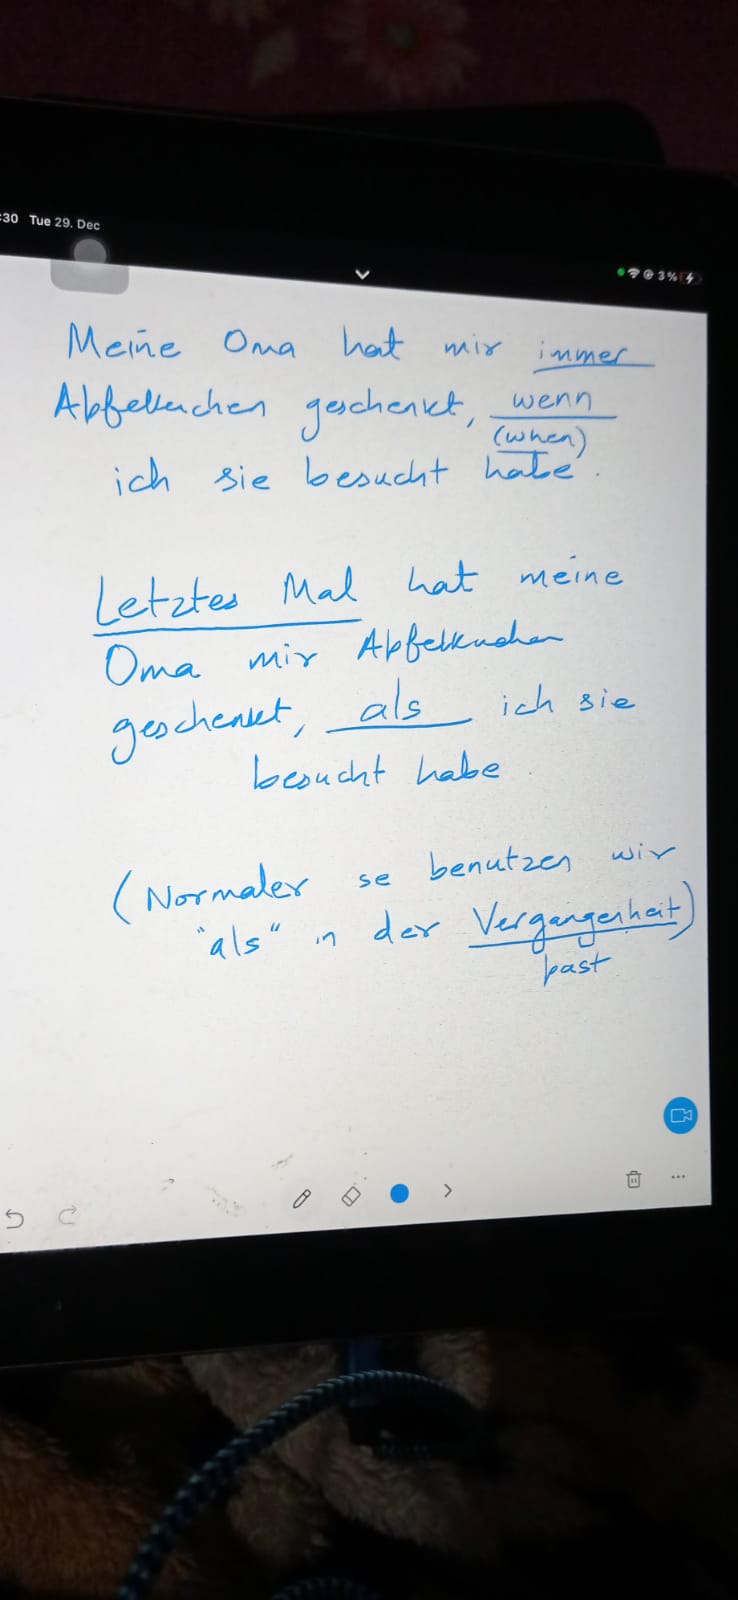 :30 Tue 29. Dec
3%
Meine Oma hat mir immer
Apfelkuchen geschenkt, wenn
(when)
ich sie besucht habe.
Letztes Mal hat meine
Oma mir Apfelkuchen
geschenkt, als ich sie
besucht habe
(Normaler se benutzen wir
"als" in der Vergangenheit)
past